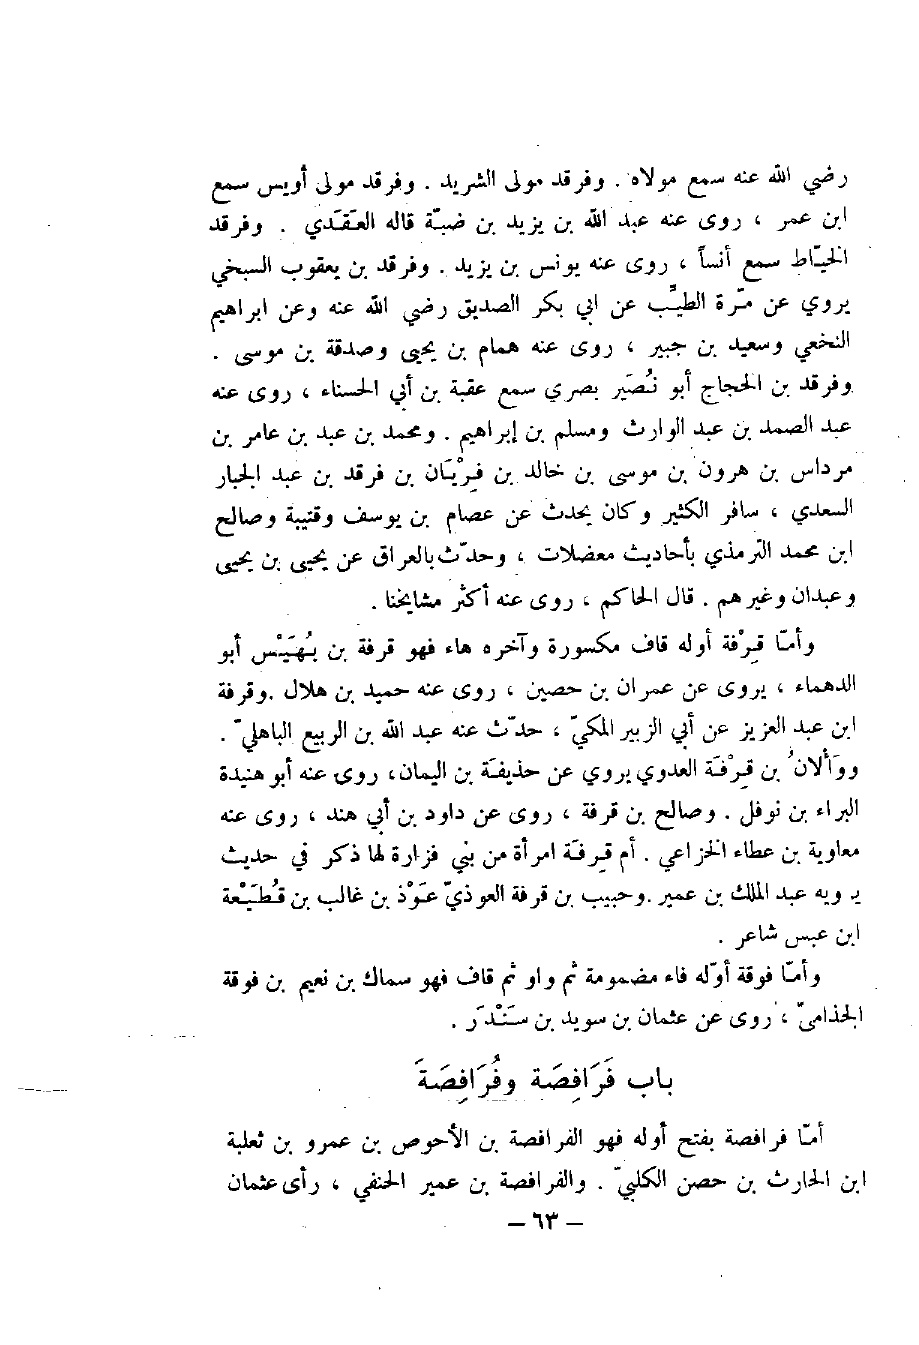 رضي الله عنه سمع مولاه . وفرقد مولى الشريد . وفرقد مولى أويس سمع
ابن عمر ، روى عنه عبد الله بن يزيد بن ضبّة قاله العَقَدي . وفرقد
الخيّاط سمع أنساً ، روى عنه يونس بن يزيد . وفرقد بن يعقوب السبخي
يروي عن مرّة الطيّب عن ابي بكر الصديق رضي الله عنه وعن ابراهيم
النخعي وسعيد بن جبير ، روى عنه همام بن يحيى وصدقة بن موسى .
وفرقد بن الحجاج أبو نُصَير بصري سمع عقبة بن أبي الحسناء ، روى عنه
عبد الصمد بن عبد الوارث ومسلم بن إبراهيم . ومحمد بن عبد بن عامر بن
مرداس بن هرون بن موسى بن خالد بن فِرْيَان بن فرقد بن عبد الجبار
السعدي ، سافر الكثير وكان يحدث عن عصام بن يوسف وقتيبة وصالح
ابن محمد الترمذي بأحاديث معضلات ، وحدّث بالعراق عن يحيى بن يحيى
وعبدان وغيرهم . قال الحاكم ، روى عنه أكثر مشايخنا .
وأمّا قِرْفة أوله قاف مكسورة وآخره هاء فهو قرفة بن بُهَيْس أبو
الدهماء ، يروى عن عمران بن حصين ، روى عنه حميد بن هلال .وقرفة
ابن عبد العزيز عن أبي الزبير المكيّ ، حدّث عنه عبد الله بن الربيع الباهليّ .
ووَألانُ بن قِرْفَة العدوي يروي عن حذيفة بن اليمان، روى عنه أبو هنيدة
البراء بن نوفل . وصالح بن قرفة ، روى عن داود بن أبي هند ، روى عنه
معاوية بن عطاء الخزاعي . أم قِرفة امرأة من بني فزارة لها ذكر في حديث
يرويه عبد الملك بن عمير .وحبيب بن قرفة العوذيّ عَوْذ بن غالب بن قُطَيْعة
ابن عبس شاعر .
وأمّا فوقة أوّله فاء مضمومة ثم واو ثم قاف فهو سماك بن نعيم بن فوقة
الجذاميّ ، روى عن عثمان بن سويد بن سَنْدَر .
باب فَرَافِصَة وفُرَافِصَة
أمّا فرافصة بفتح أوله فهو الفرافصة بن الأحوص بن عمرو بن ثعلبة
ابن الحارث بن حصن الكلبيّ . والفرافصة بن عمير الحنفي ، رأى عثمان
– ٦٣ –